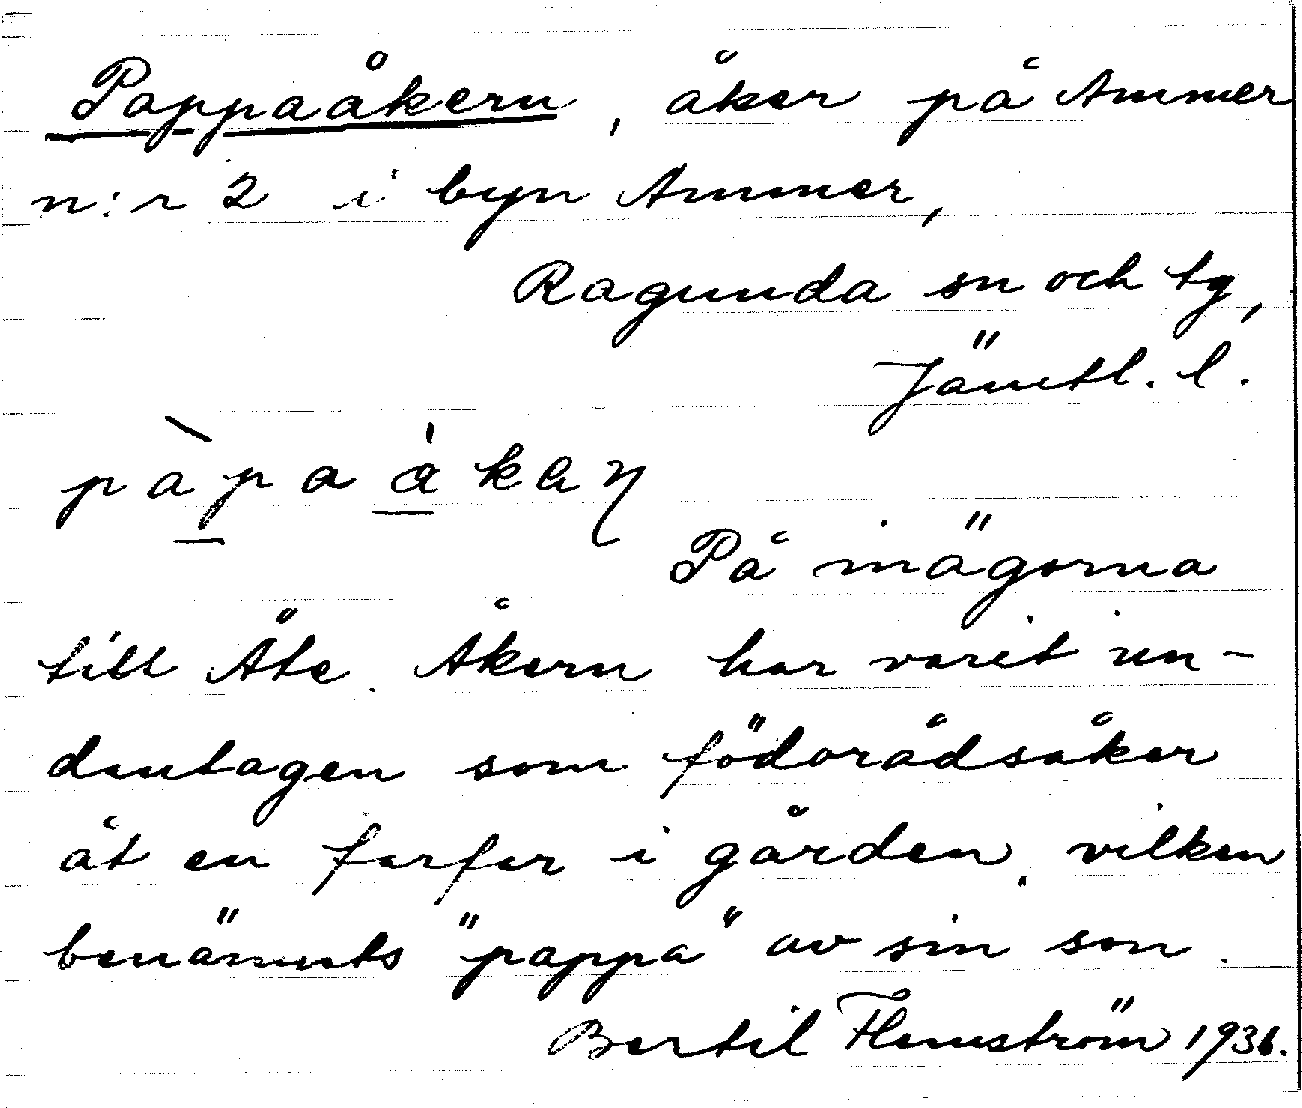 Pappaåkern, åker på Ammer
n:r 2 i byn Ammer,
Ragunda sn och tg,
Jämtl. l.
pàpaákaŋ
På inägorna
till Åte. Åkern har varit un-
dantagen som födorådsåker
åt en farfar i gården, vilken
benämnts "pappa" av sin son.
Bertil Flemström 1936.